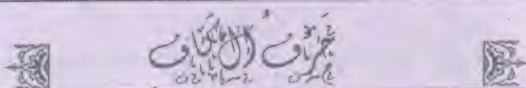 حَرفُ الكَاف